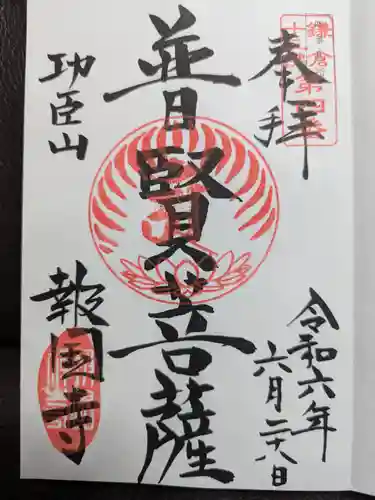 奉拝
鎌倉
十三佛第四番
令和六年
六月二十八日
普賢菩薩
功臣山
報国寺